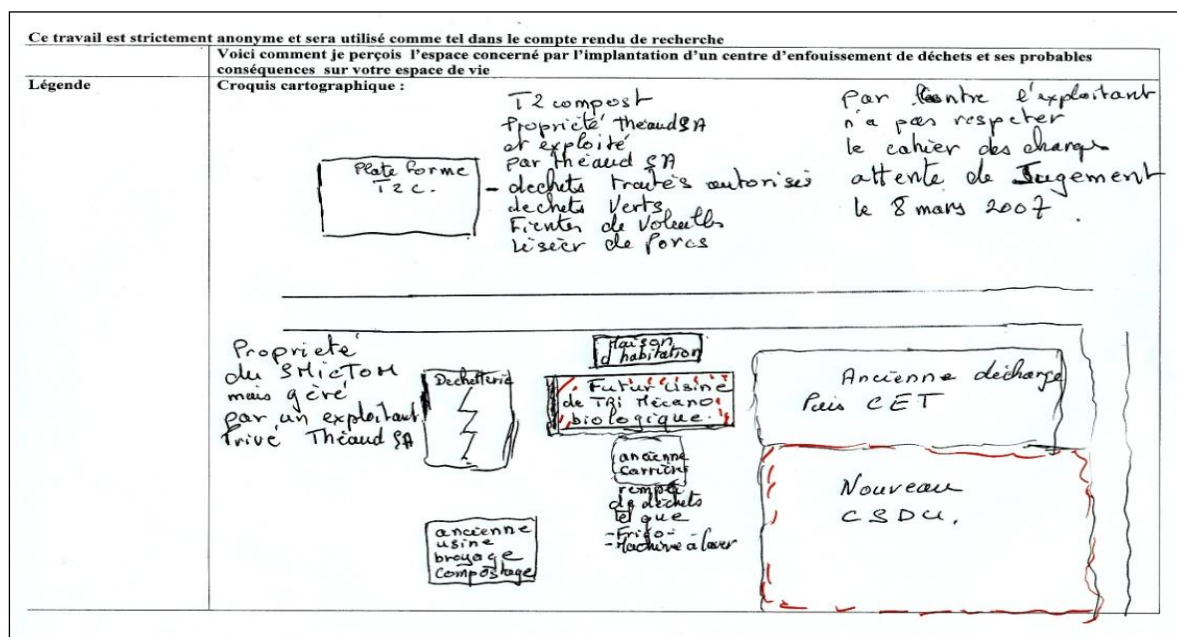 Ce travail est strictement anonyme et sera utilisé comme tel dans le compte rendu de recherche
Voici comment je perçois l'espace concerné par l'implantation d'un centre d'enfouissement de déchets et ses probables
conséquences sur votre espace de vie
Légende
Croquis cartographique :
T2 compost
Propriété Théaud SA
et exploité
par Théaud SA
- dechets traités autorisés
dechets Verts
Fientes de
de Porcs
Par contre l'exploitant
n'a pas respecter
le cahier des charges
attente de Jugement
le 8 mars 2007.
Plate forme
T2C.
Propriete
du SMICTOM
mais géré
par un exploitant
Privé Théaud SA
Dechetterie
Maison
d'habitation
Futur Usine
de TRI Mécano
biologique.
ancienne
Carrière
remplie
de déchets
tel que
- Frigo -
- Machine à laver
ancienne
usine
broyage
compostage
Ancienne décharge
Puis CET
Nouveau
CSDU.